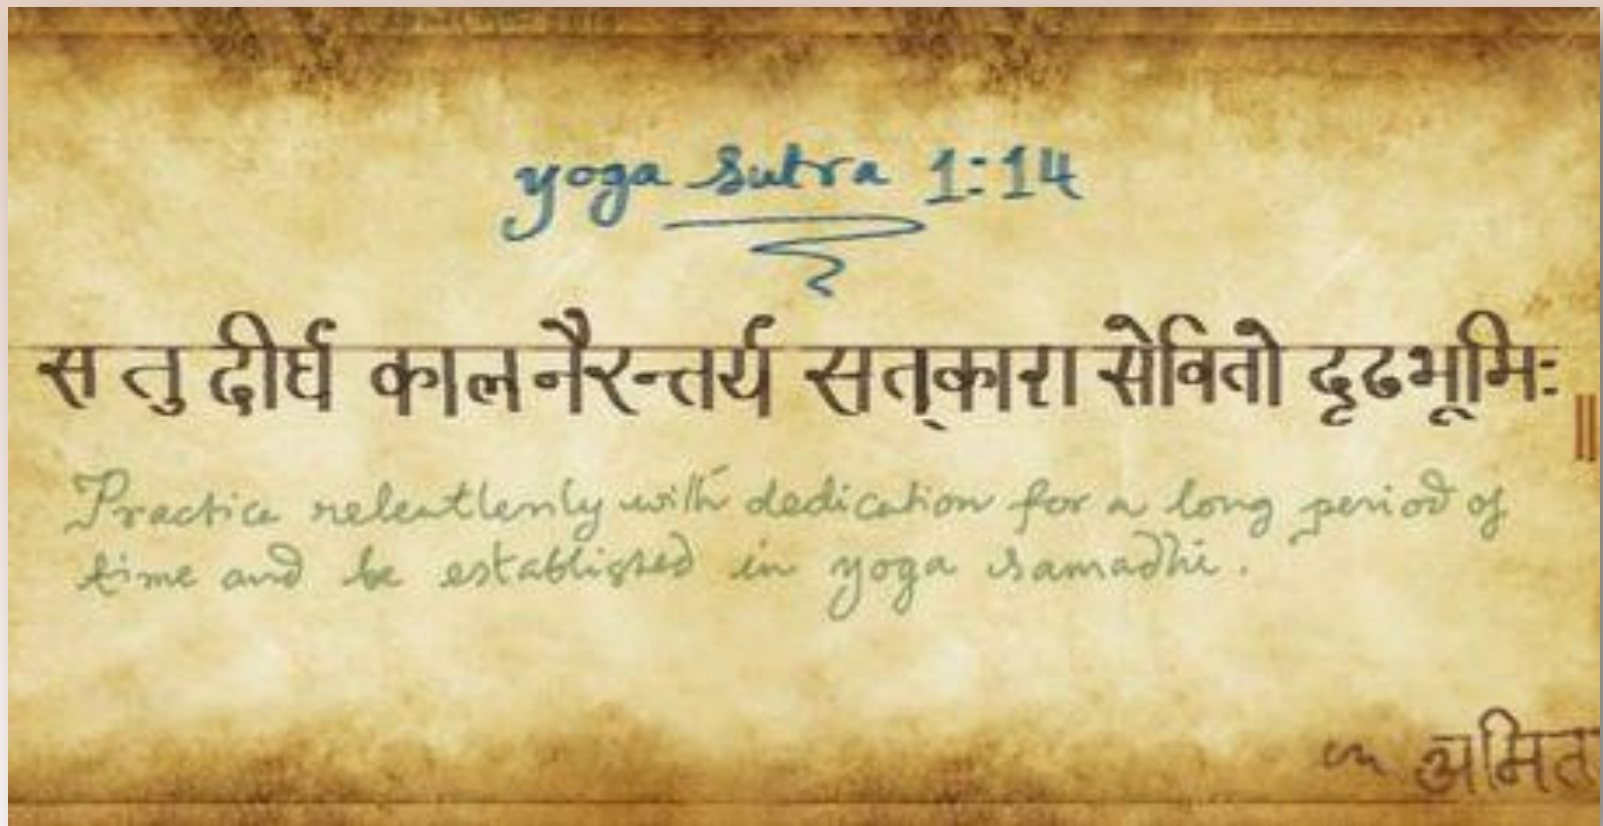 yoga sutra 1:14
स तु दीर्घ काल नैरन्तर्य सत्‌कारा सेवितो दृढभूमिः ॥
Practice relentlenly with dedication for a long period of
time and be established in yoga samadhi.
अमित